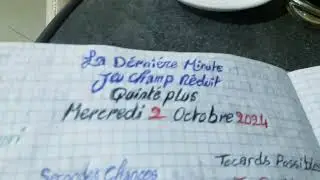 La Dérniére Minute
Jeu Champ Réduit
Quinté plus
Mercredi 2 Octobre 2024
Tocards Possibles
Secondes Chances